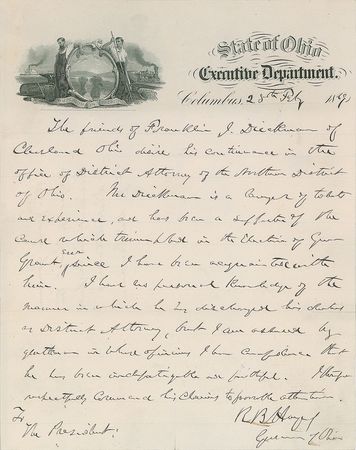 State of Ohio
Executive Department.
Columbus, 28th Feby 1869
The friends of Franklin J. Dickman of
Cleveland Ohio desire his continuance in the
office of District Attorney of the Northern District
of Ohio. Mr Dickman is a lawyer of talent
and experience, and has been a supporter of the
cause which triumphed in the election of Genl
Grant ever since I have been acquainted with
him. I have no personal knowledge of the
manner in which he has discharged his duties
as District Attorney, but I am assured by
gentlemen in whose opinions I have confidence that
he has been indefatigable and faithful. I therefore
respectfully commend his claims to favorable attention.
R B Hayes
Governor of Ohio
To
The President: